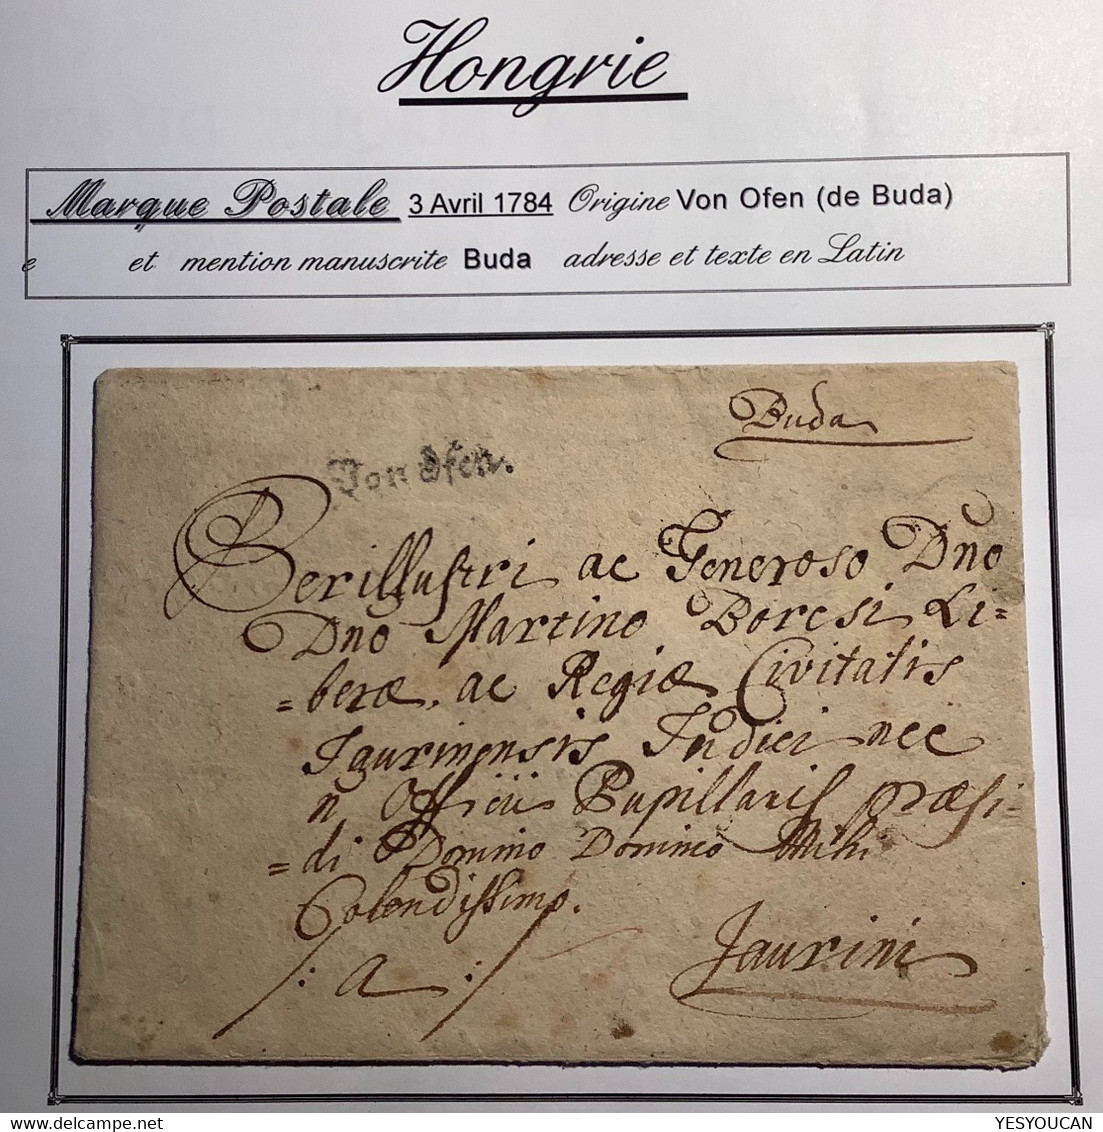 Hongrie
Marque Postale 3 Avril 1784 Origine Von Ofen (de Buda)
e et mention manuscrite Buda adresse et texte en Latin
Buda
Von Ofen.
Perillustri ac Generoso Dno
Dno Martino Borcsi Li=
=beræ, ac Regiæ Civitatis
Jaurinensis Judici nec
n Officii Pupillaris præsi=
=di Domino Domino Mihi
Colendissimo.
/: a :/ Jaurini
YESYOUCAN